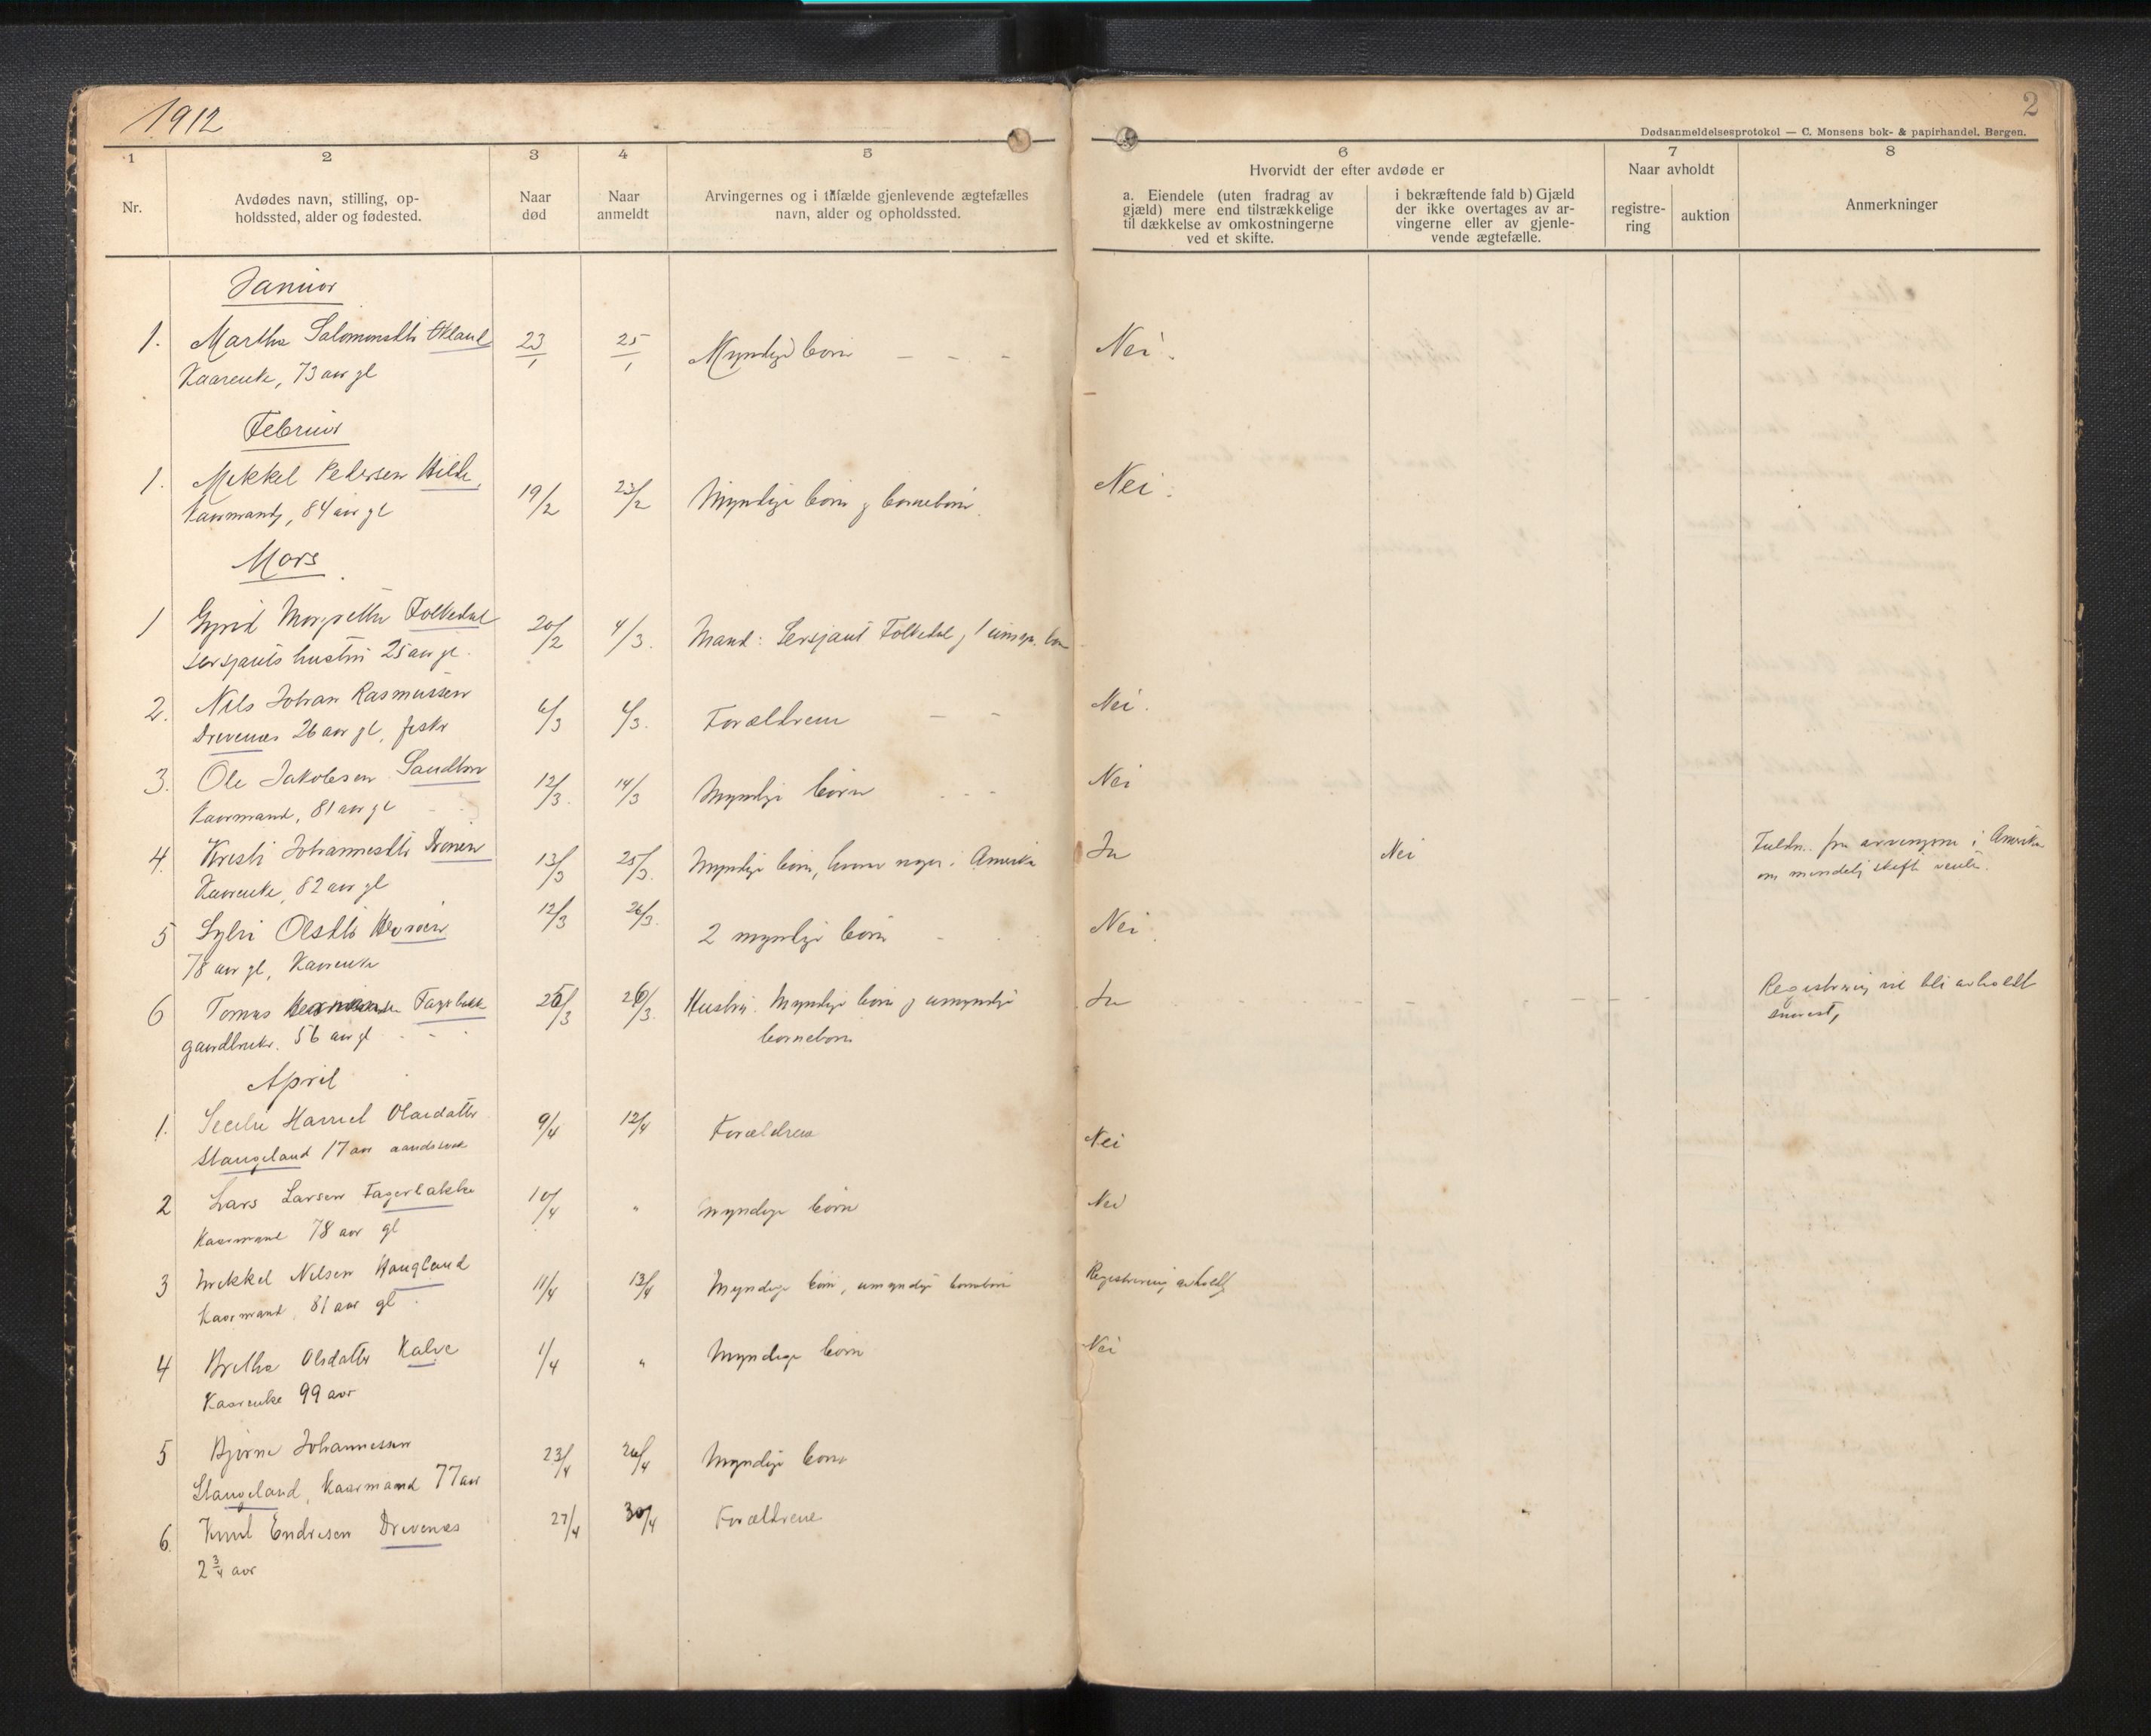 1912
2
Dødsanmeldelsesprotokol — C. Monsens bok- & papirhandel, Bergen.
1
Nr.
2
Avdødes navn, stilling, op-
holdssted, alder og fødested.
3
Naar
død
4
Naar
anmeldt
5
Arvingernes og i tilfælde gjenlevende ægtefælles
navn, alder og opholdssted.
6
Hvorvidt der efter avdøde er
a. Eiendele (uten fradrag av
gjæld) mere end tilstrækkelige
til dækkelse av omkostningerne
ved et skifte.
i bekræftende fald b) Gjæld
der ikke overtages av ar-
vingerne eller av gjenle-
vende ægtefælle.
7
Naar avholdt
registre-
ring
auktion
8
Anmerkninger
Januar
1. Martha 23/1 25/1 Myndige børn — - - Nei.
Kaarenke, 73 aar gl
Februar
1. Mikkel Pedersen Hilde, 19/2 23/2 Myndige børn og børnebørn. Nei.
Kaarmand, 84 aar gl
Mars
1 Folkedal 20/2 4/3. Mand: Sersjant Folkedal og 1
sersjants hustru 25 aar gl.
2. Nils Johan Rasmussen Forældrene — - Nei.
Drevenæs 26 aar gl, fisker
3. Ole Jakobsen 12/3. 14/3 Myndige børn - - - Nei
Kaarmand, 81 aar gl
4. Kristi Johannesdtr 13/3 25/3. Myndige børn, hvorav nogen i Amerika Ja Nei fra arvingerne i Amerika
Kaarenke, 82 aar gl om mindelig skifte
5 Olsdtr 12/3 26/3. 2 myndige børn - Nei.
78 aar gl, Kaarenke
6 Tomas 25/3 26/3. Hustru. Myndige børn og umyndige Ja Registrering vil bli avholdt
gaardbruker. 56 aar gl børnebørn snarest,
April
1. Olaidatter 9/4 12/4 Forældrene Nei
Stangeland 17 aar
2 Lars Larsen Fagerbakke 10/4 " Myndige børn Nei
Kaarmand 78 aar gl
3 Mikkel Nilsen Haugland 11/4 13/4 Myndige børn, umyndige børnebørn Registrering avholdt
Kaarmand, 81 aar gl.
4 Britha Olsdatter Kalve 1/4 " Myndige børn Nei
Kaarenke 99 aar
5 Bjørne Johannessen 23/4 26/4 Myndige børn
Stangeland, Kaarmand 77 aar
6. Knut Endresen Drevenæs 27/4 30/4 Forældrene
2 3/4 aar